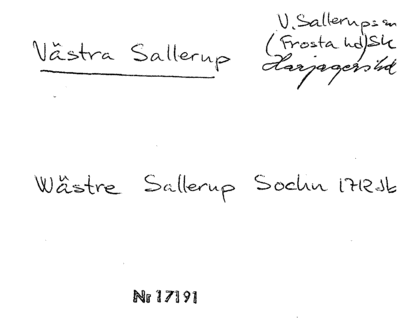 Västra Sallerup
V. Sallerups sn
(Frosta hd) Sk
Harjagers hd
Wästre Sallerup Sochn 1712 Jb
Nr 17191